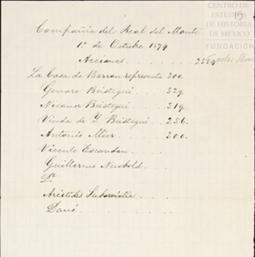 CENTRO DE
ESTUDIOS
DE HISTORIA
DE MÉXICO
FUNDACIÓN
Compañia del Real del Monte
1º de Octubre 1874
Acciones 2554
La Casa de Barron represente 300.
Genaro Béistegui 329.
Nicanor Béistegui 319.
Viuda de J Béistegui 256.
Antonio Mier 200.
Vicente Escandon
Guillermo Newbold.
Dr
Arístides